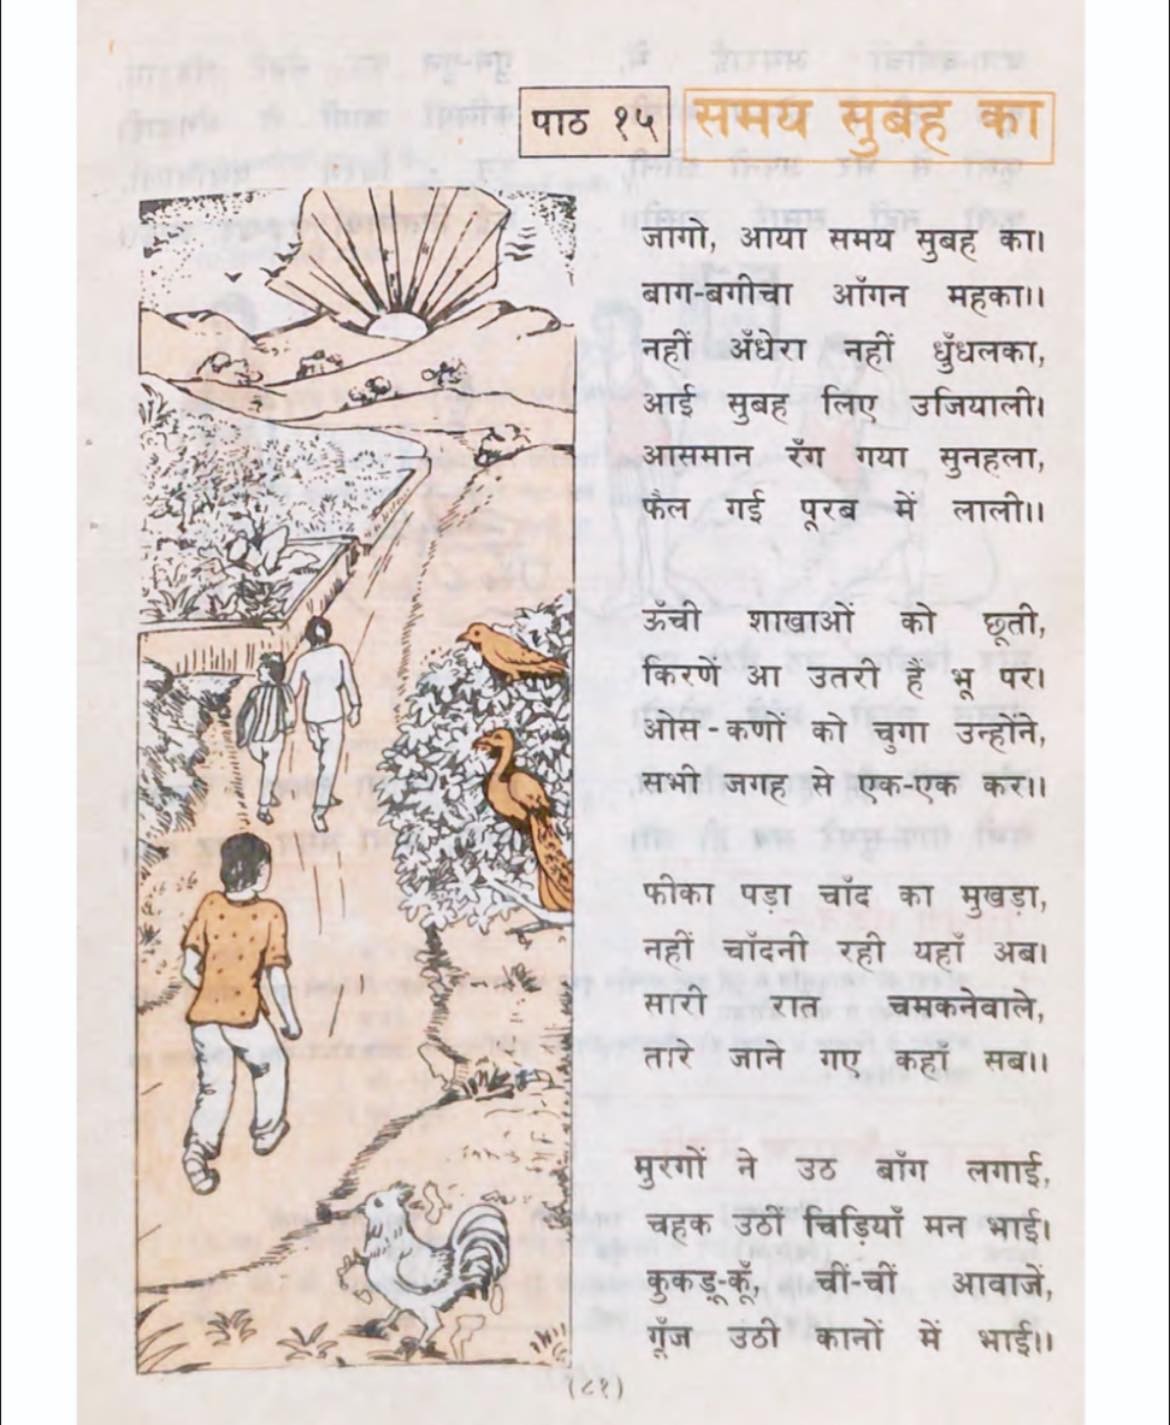 पाठ १५
समय सुबह का
जागो, आया समय सुबह का।
बाग-बगीचा आँगन महका।।
नहीं अँधेरा नहीं धुँधलका,
आई सुबह लिए उजियाली।
आसमान रँग गया सुनहला,
फैल गई पूरब में लाली।।
ऊँची शाखाओं को छूती,
किरणें आ उतरी हैं भू पर।
ओस-कणों को चुगा उन्होंने,
सभी जगह से एक-एक कर।।
फीका पड़ा चाँद का मुखड़ा,
नहीं चाँदनी रही यहाँ अब।
सारी रात चमकनेवाले,
तारे जाने गए कहाँ सब।।
मुरगों ने उठ बाँग लगाई,
चहक उठीं चिड़ियाँ मन भाई।
कुकड़ू-कूँ, चीं-चीं आवाजें,
गूँज उठी कानों में भाई।।
(८१)